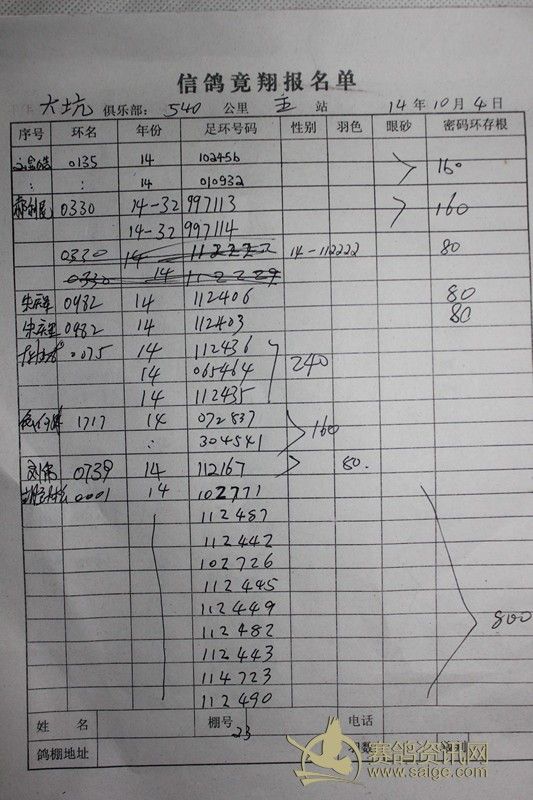 信鸽竟翔报名单
大坑 俱乐部: 540 公里 主 站 14 年 10 月 4 日
序号 环名 年份 足环号码 性别 羽色 眼砂 密码环存根
0135 14 102456 160
: : 14 010932
0330 14-32 997113 160
14-32 997114
0330 14 112222 14-112222 80
0330 14 112229
0482 14 112406 80
0482 14 112403 80
0075 14 112436 240
14 065464
14 112435
1717 14 072837 160
: 304541
刘伟 0739 14 112167 80.
0001 14 102771
112487
112442
102726
112445
112449 800
112482
112443
114723
112490
姓 名 棚号 23 电话
鸽棚地址 羽数
赛鸽资讯网
www.saige.com